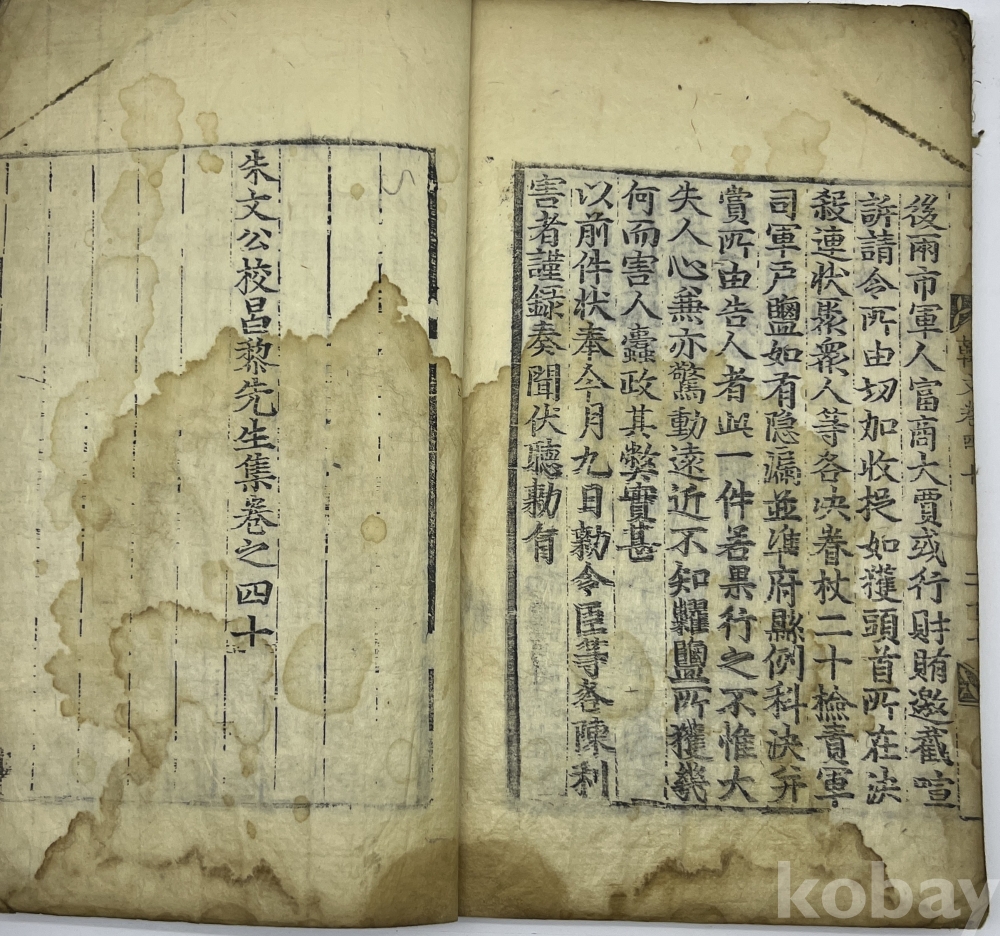 後兩市軍人富商大賈或行財賄邀截喧
訴請令所由切加收捉如獲頭首所在決
殺連狀聚衆人等各决脊杖二十檢責軍
司軍戶鹽如有隐漏並準府縣例科决并
賞所由告人者此一件若果行之不惟大
失人心兼亦驚動遠近不知糶鹽所獲幾
何而害人蠹政其弊實甚
以前件狀奉今月九日勑令臣等各陳利
害者謹録奏聞伏聽勑旨
朱文公校昌黎先生集卷之四十
kobay